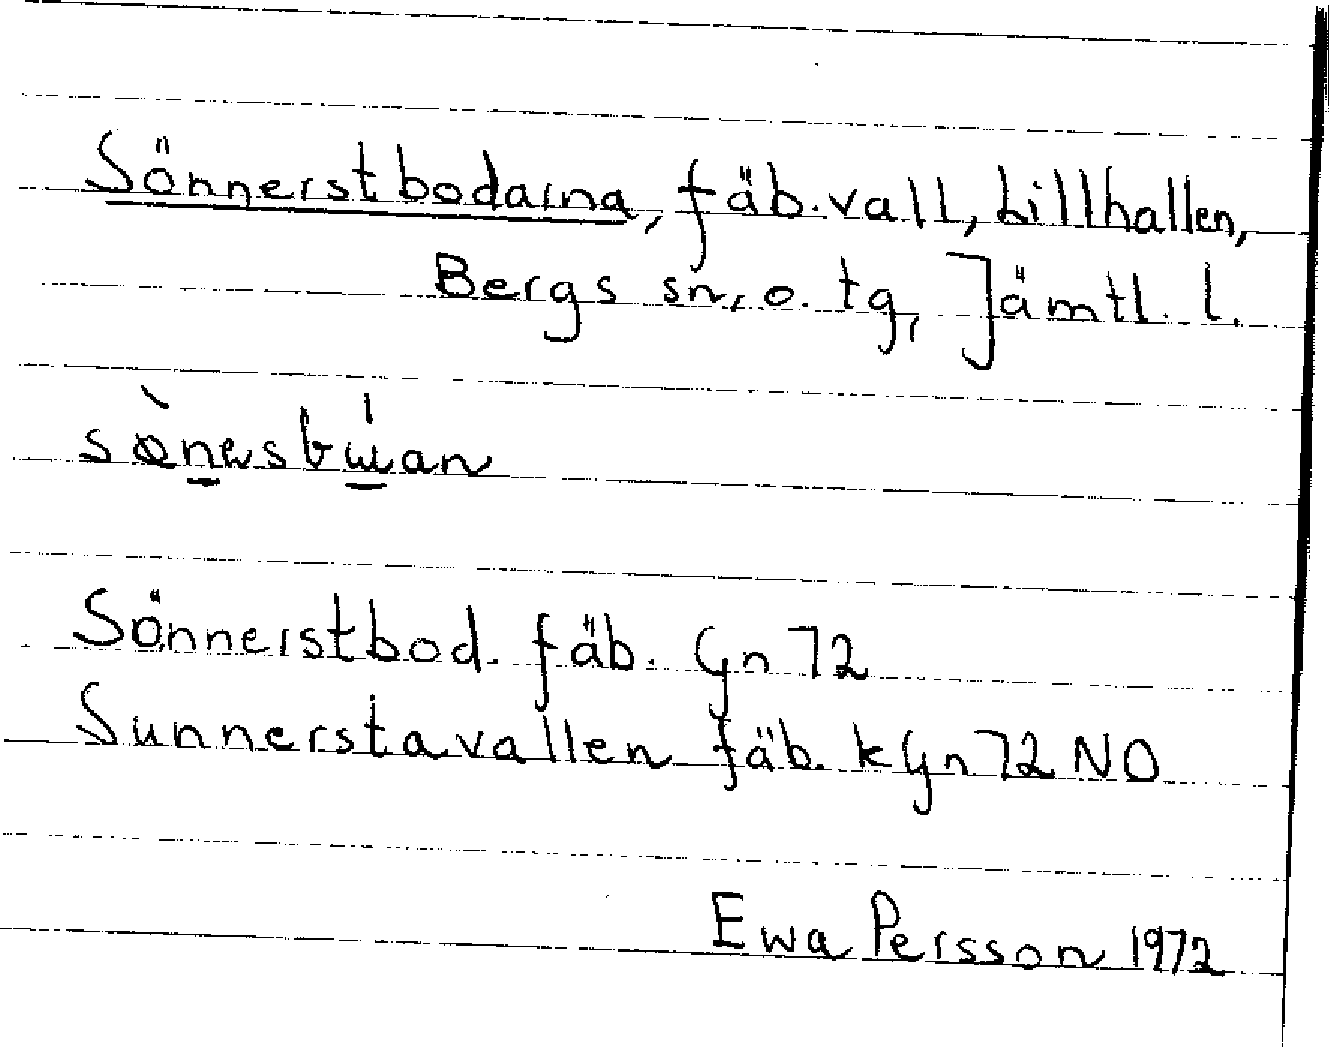 Sönnerstbodarna, fäb.vall, Lillhallen,
Bergs sn, o. tg, Jämtl. l.
Sönnerstbod. fäb. Gn 72
Sunnerstavallen fäb. kGn 72 NO
Ewa Persson 1972